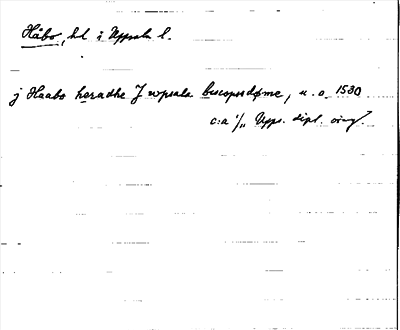 Håbo, hd i Uppsala l.
j Haabo heradhe J wpsala biscopsdøme, u. o. 1530
c:a 1/11 Upps. dipl. orig.